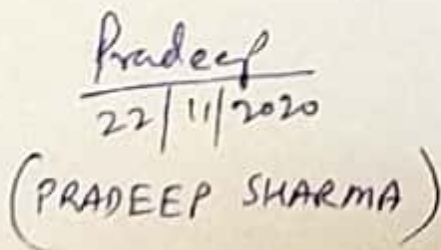 Pradeep
22/11/2020
(PRADEEP SHARMA)